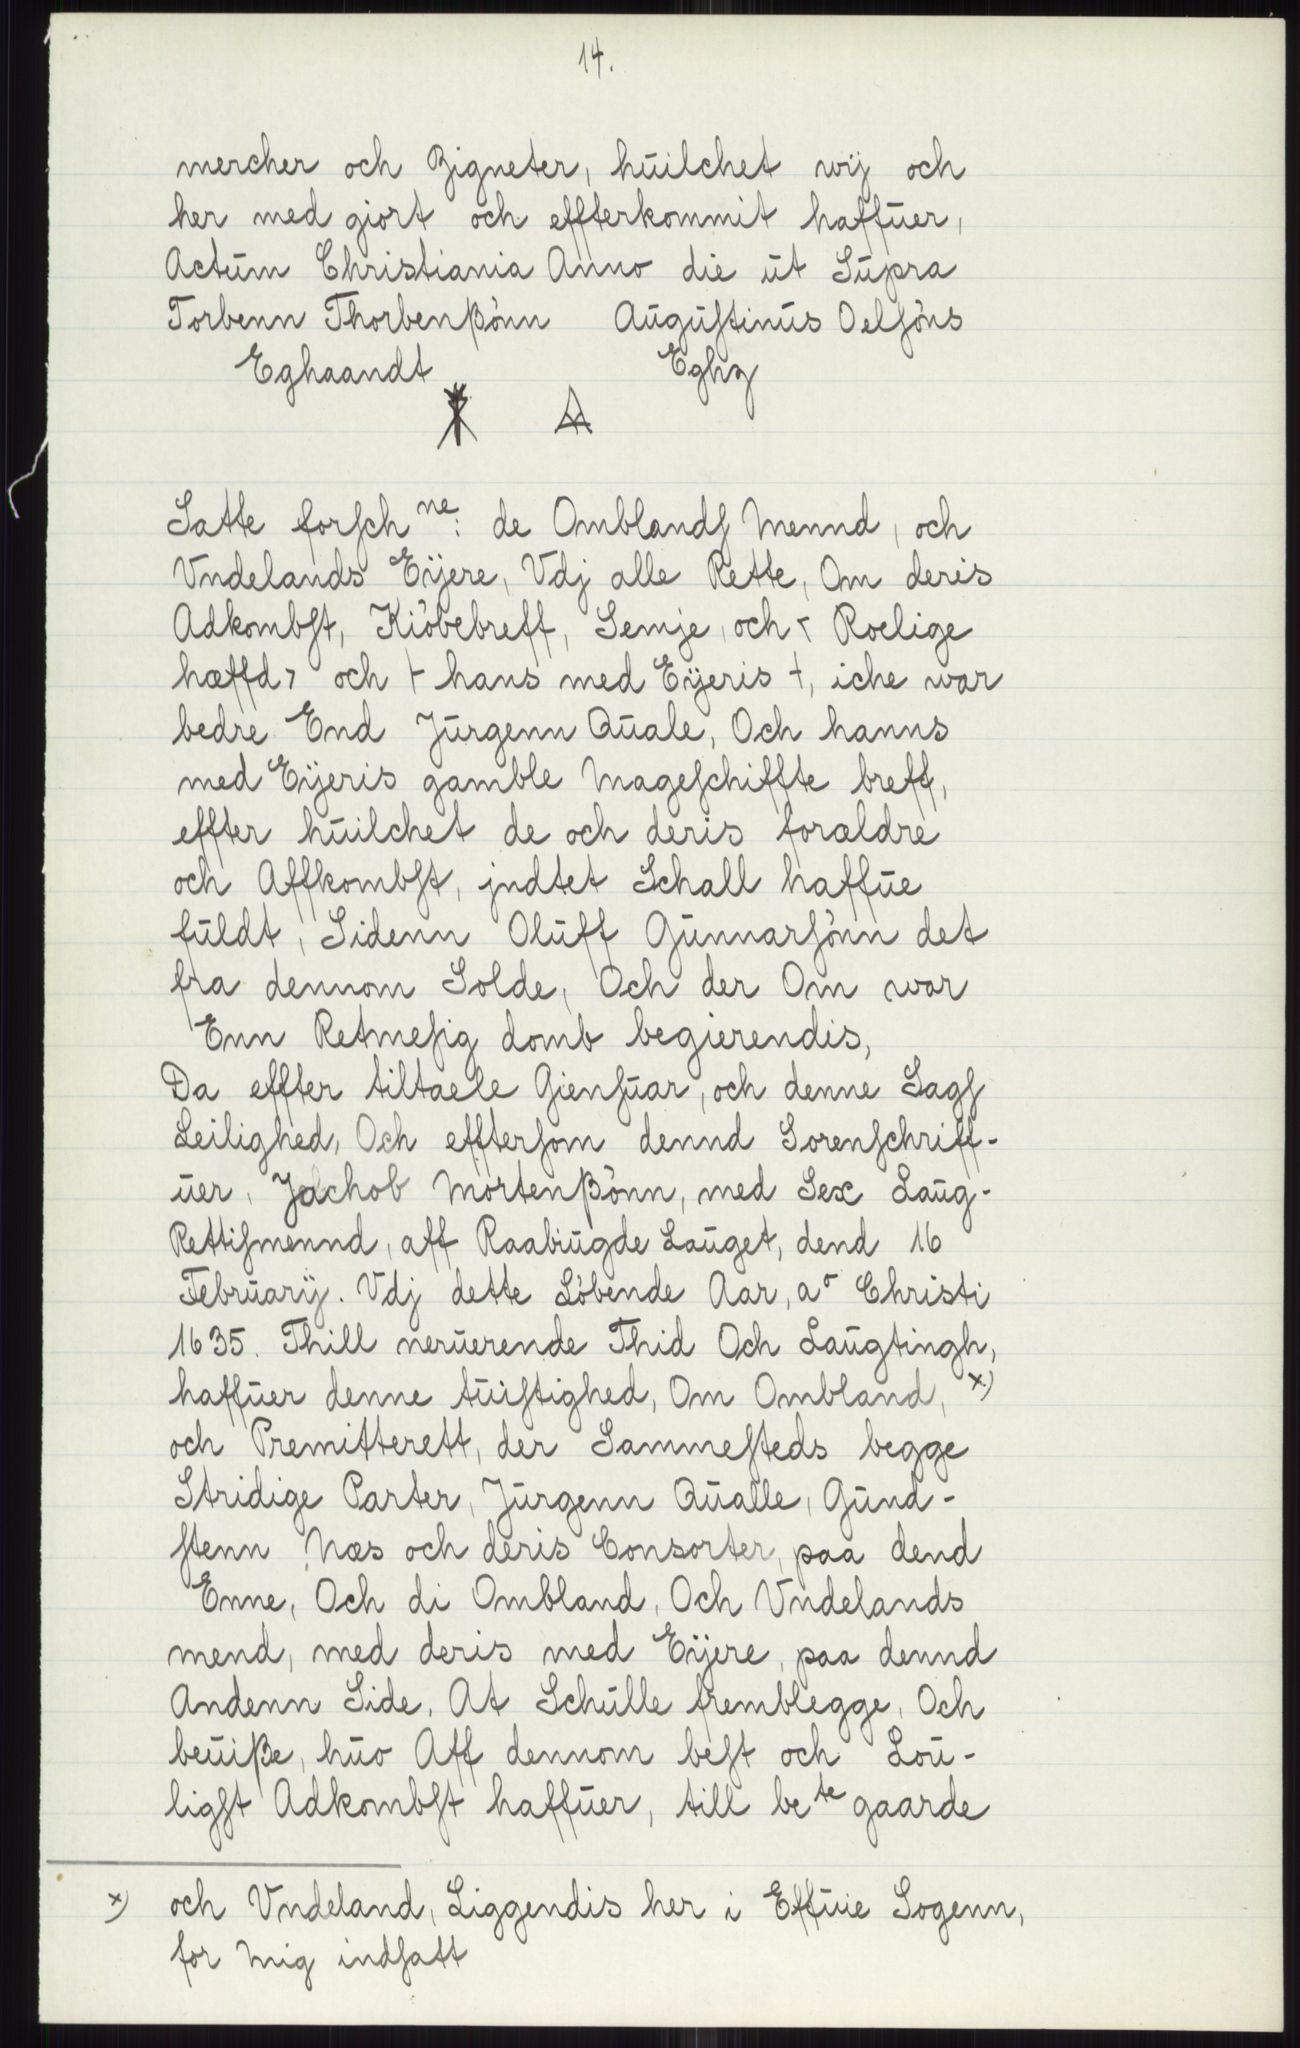 14.
mercher och Zigneter, huilchet wij och
her med giort och effterkommit haffuer,
Actum Christiania Anno die ut Supra
Torbenn Thorbenßönn Augustinus Oelsöns
Eghaandt Eghz
Satte forsch ne: de Omblands Mennd, och
Vndelands Eijere, Vdj alle Rette, Om deris
Adkombst, Kiöbebreff, Semje, och < Roelige
hæffd > och + hans med Eijeris +, iche war
bedre End Jürgenn Quale, Och hanns
med Eijeris gamble Mageschiffte breff,
effter huilchet de och deris forældre
och Affkombst, jndtet Schall haffue
fuldt, Sidenn Oluff Gunnarsönn det
fra dennom Solde, Och der Om war
Enn Retmesig domb begierendis,
Da effter tiltaele Giensuar, och denne Sags
Leilighed, Och efftersom dennd Sorenschriff-
uer, Jachob Mortenßönn, med Sex Laug-
Rettismennd, aff Raabiugde Lauget, dend 16
Februarij. Vdj dette Löbende Aar, ao Christi
1635. Thill neruerende Thid Och Laugtingh,
haffuer denne tuistighed, Om Ombland, x)
och Premitterett, der Sammesteds begge
Stridige Parter, Jürgenn Qualle, Gund-
stenn Næs och deris Consorter, paa dend
Enne, Och di Ombland, Och Vndelands
mend, med deris med Eijere, paa dennd
Andenn Side, At Schulle fremblegge, Och
beuiße, huo Aff dennom best och Lou-
ligst Adkombst haffuer, till be te gaarde
x) och Vndeland, Liggendis her i Effuie Sogenn,
for Mig indsatt